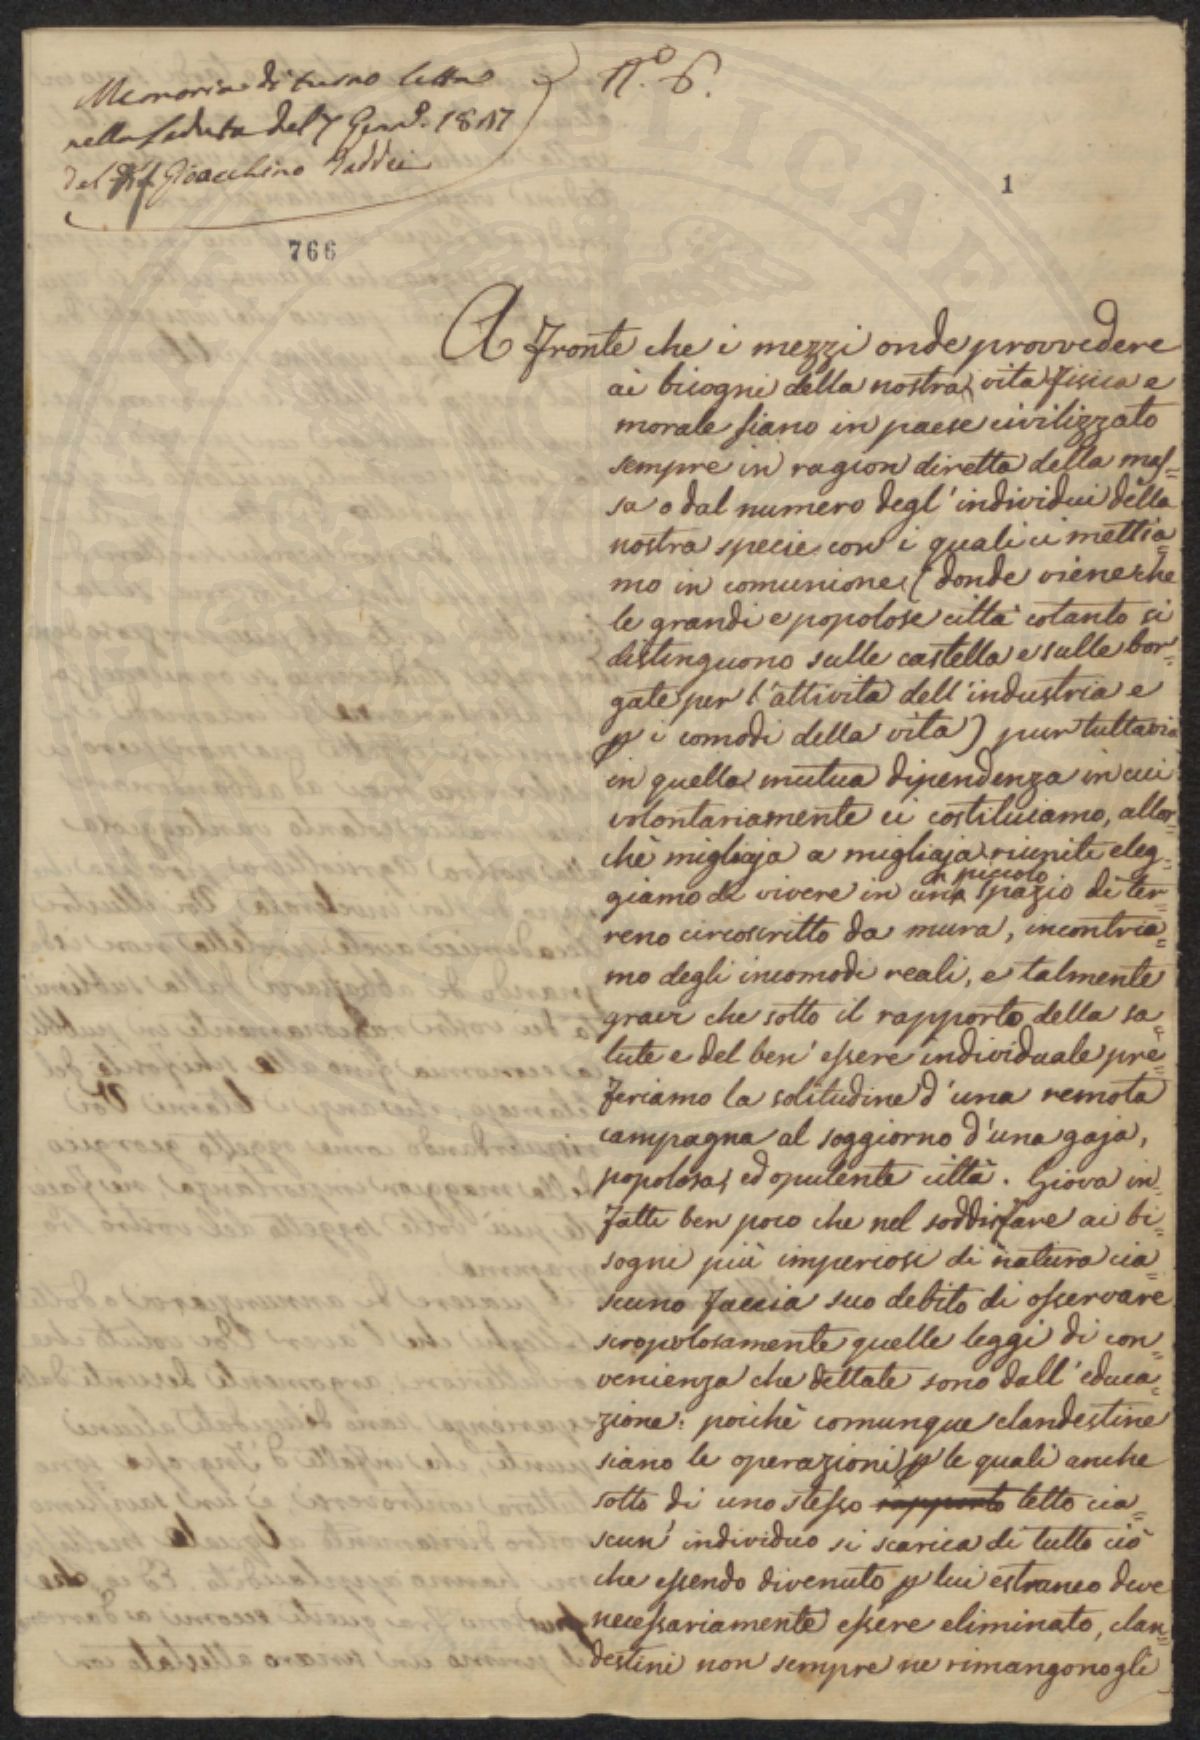 Memoria di turno letta
nella Seduta del 7 Genn.º 1817
del Prof. Gioacchino Taddei
Nº. 6.
1
766
A fronte che i mezzi onde provvedere
ai bisogni della nostra vita fisica e
morale siano in paese civilizzato
sempre in ragion diretta della mas=
sa o dal numero degl' individui della
nostra specie con i quali ci mettia=
mo in comunione (donde viene che
le grandi e popolose città cotanto si
distinguono sulle castella e sulle bor=
gate per l'attività dell'industria e
p i comodi della vita) pur tuttavia
in quella mutua dipendenza in cui
volontariamente ci costituiamo, allor=
chè migliaja a migliaja riuniti eleg=
giamo di vivere in un piccolo spazio di ter=
reno circoscritto da mura, incontria=
mo degli incomodi reali, e talmente
gravi che sotto il rapporto della sa=
lute e del ben' essere individuale pre=
feriamo la solitudine d'una remota
campagna al soggiorno d'una gaja,
popolosa, ed opulente città. Giova in=
fatti ben poco che nel soddisfare ai bi=
sogni più imperiosi di natura cia=
scuno faccia suo debito di osservare
scropolosamente quelle leggi di con=
venienza che dettate sono dall' educa=
zione: poichè comunque clandestine
siano le operazioni p le quali anche
sotto di uno stesso rapporto tetto cia=
scun' individuo si scarica di tutto ciò
che essendo divenuto p lui estraneo deve
necessariamente essere eliminato, clan=
destini non sempre ne rimangono gli